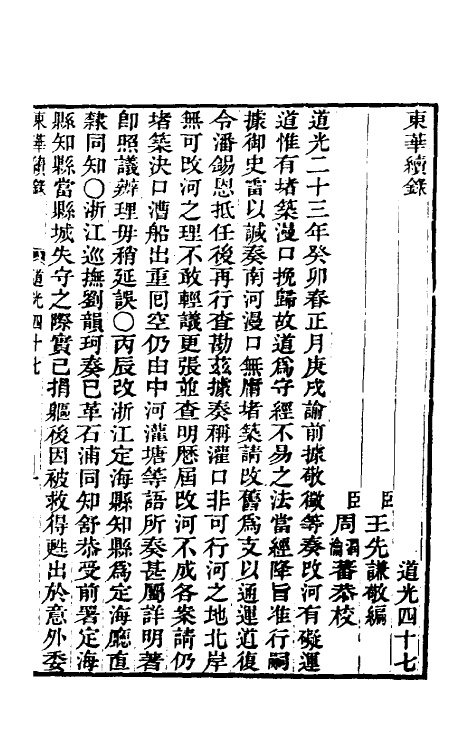 東華續錄
道光四十七
臣王先謙敬編
臣周潤蕃周瀹蕃恭校
道光二十三年癸卯春正月庚戌諭前據敬徵等奏改河有礙運
道惟有堵築漫口挽歸故道爲守經不易之法當經降旨准行嗣
據御史雷以諴奏南河漫口無庸堵築請改舊爲支以通運道復
令潘錫恩抵任後再行查勘茲據奏稱灌口非可行河之地北岸
無可改河之理不敢輕議更張並查明歷屆改河不成各案請仍
堵築決口漕船出重囘空仍由中河灌塘等語所奏甚屬詳明著
卽照議辦理毋稍延誤〇丙辰改浙江定海縣知縣爲定海廳直
隸同知〇浙江巡撫劉韻珂奏已革石浦同知舒恭受前署定海
縣知縣當縣城失守之際實已捐軀後因被救得甦出於意外委
東華續錄
道光四十七
一